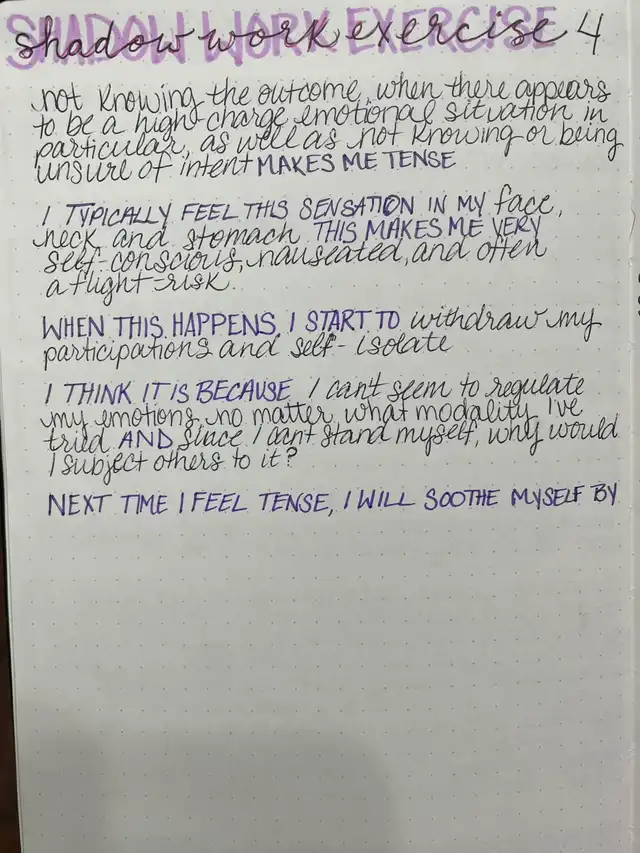 SHADOW WORK EXERCISE
shadow work exercise 4
not knowing the outcome, when there appears
to be a high-charge emotional situation in
particular, as well as not knowing or being
unsure of intent MAKES ME TENSE
I TYPICALLY FEEL THIS SENSATION IN MY face,
neck, and stomach. THIS MAKES ME VERY
self-conscious, nauseated, and often
a flight-risk.
WHEN THIS HAPPENS, I START TO withdraw my
participations and self-isolate
I THINK IT IS BECAUSE I can't seem to regulate
my emotions, no matter what modality I've
tried AND since I can't stand myself, why would
I subject others to it?
NEXT TIME I FEEL TENSE, I WILL SOOTHE MYSELF BY